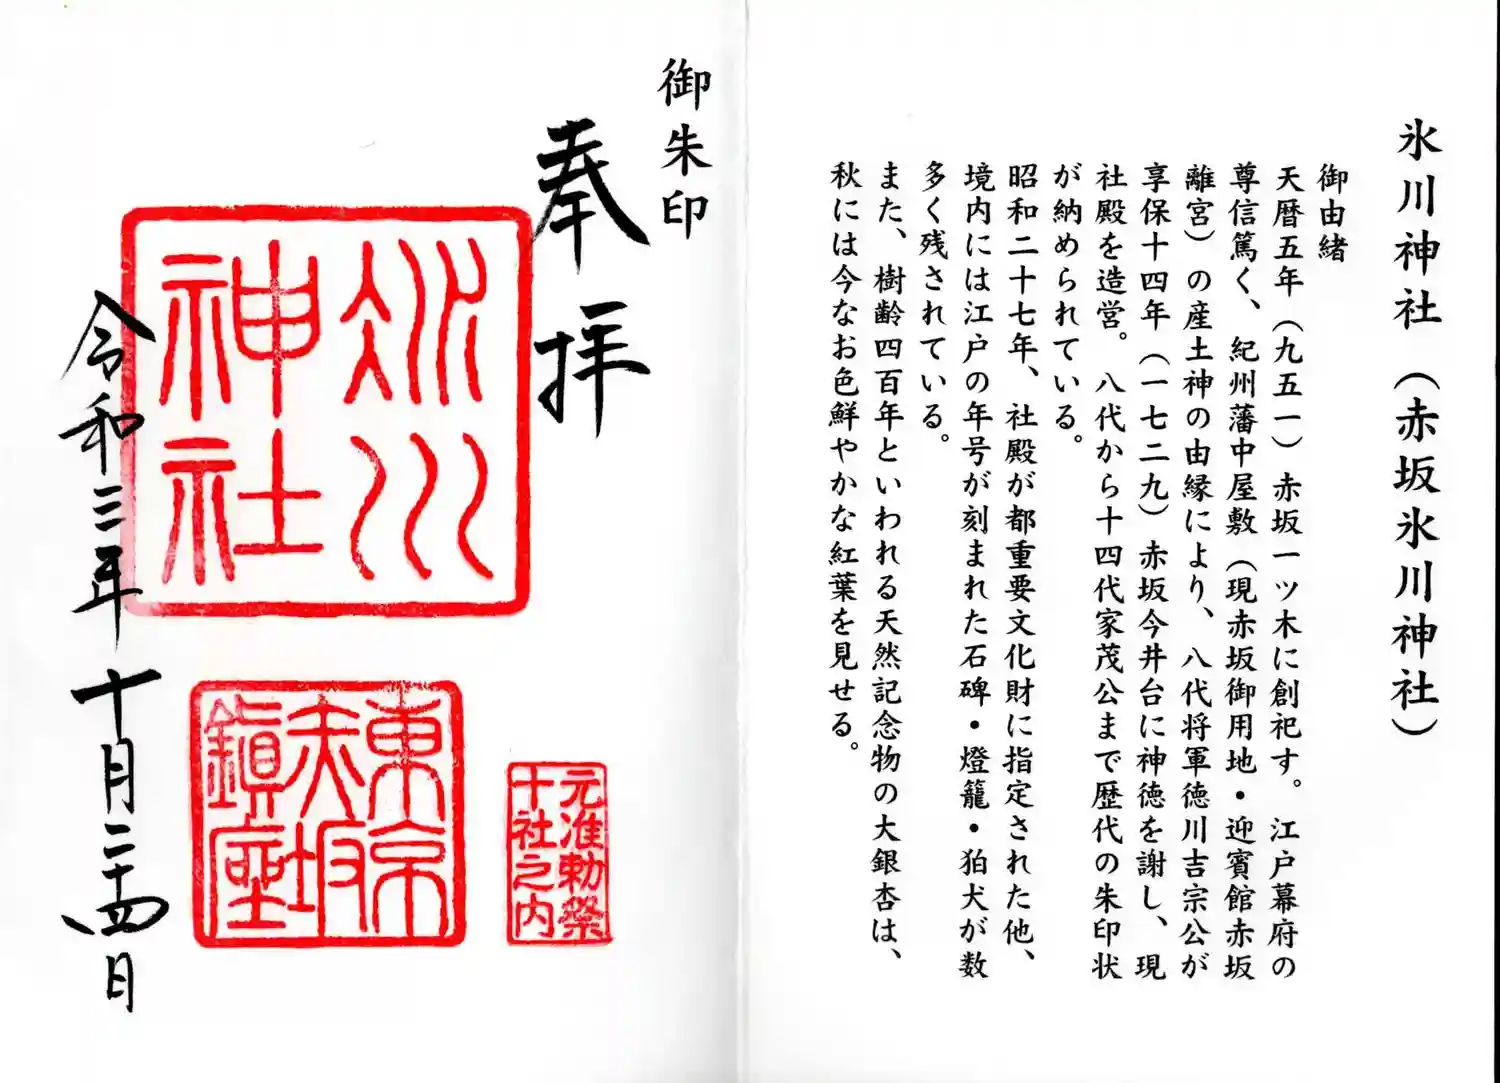 氷川神社（赤坂氷川神社）
御由緒
天暦五年（九五一）赤坂一ツ木に創祀す。江戸幕府の
尊信篤く、紀州藩中屋敷（現赤坂御用地・迎賓館赤坂
離宮）の産土神の由縁により、八代将軍徳川吉宗公が
享保十四年（一七二九）赤坂今井台に神徳を謝し、現
社殿を造営。八代から十四代家茂公まで歴代の朱印状
が納められている。
昭和二十七年、社殿が都重要文化財に指定された他、
境内には江戸の年号が刻まれた石碑・燈籠・狛犬が数
多く残されている。
また、樹齢四百年といわれる天然記念物の大銀杏は、
秋には今なお色鮮やかな紅葉を見せる。
御朱印
奉拝
氷川
神社
東京
赤坂
鎮座
元准勅祭
十社之内
令和三年十月二十四日